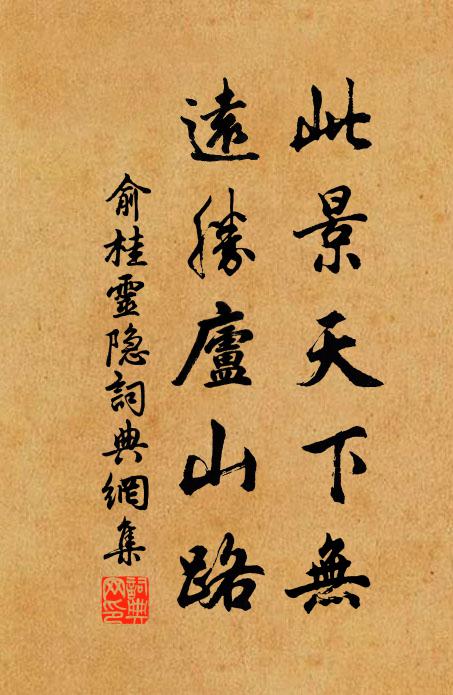 此景天下無
遠勝廬山路
俞桂靈隐詞典網集
詞典网印